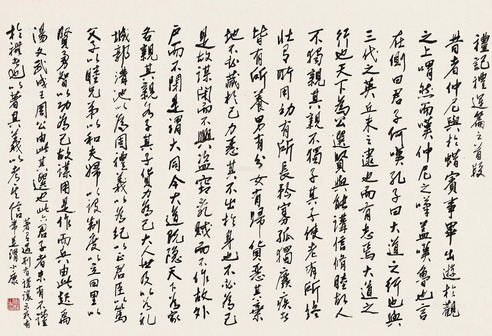 禮記禮運篇之首段
昔者仲尼與於蜡賓事畢出遊於觀
之上喟然而嘆仲尼之嘆蓋嘆魯也言
在側曰君子何嘆孔子曰大道之行也與
三代之英丘未之逮也而有志焉大道之
行也天下為公選賢與能講信修睦故人
不獨親其親不獨子其子使老有所終
壯有所用幼有所長矜寡孤獨廢疾者
皆有所養男有分女有歸貨惡其棄
地不必藏於己力惡其不出於身也不必為己
是故謀閉而不興盜竊亂賊而不作故外
戶而不閉是謂大同今大道既隱天下為家
各親其親各子其子貨力為己大人世及以為禮
城郭溝池以為固禮義以為紀以正君臣以篤
父子以睦兄弟以和夫婦以設制度以立田里以
賢勇智以功為己故謀用是作而兵由此起禹
湯文武成周公由此其選也此六君子者未有不謹
於禮者也以著其義以考其信